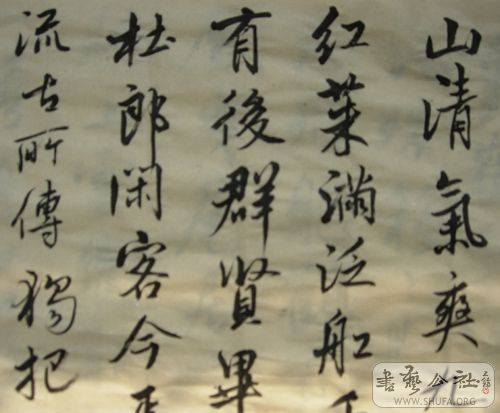 山清氣爽
紅茱滿泛船
有後群賢畢
杜郎閑客今
流古所傳獨把
書藝公社
WWW.SHUFA.ORG